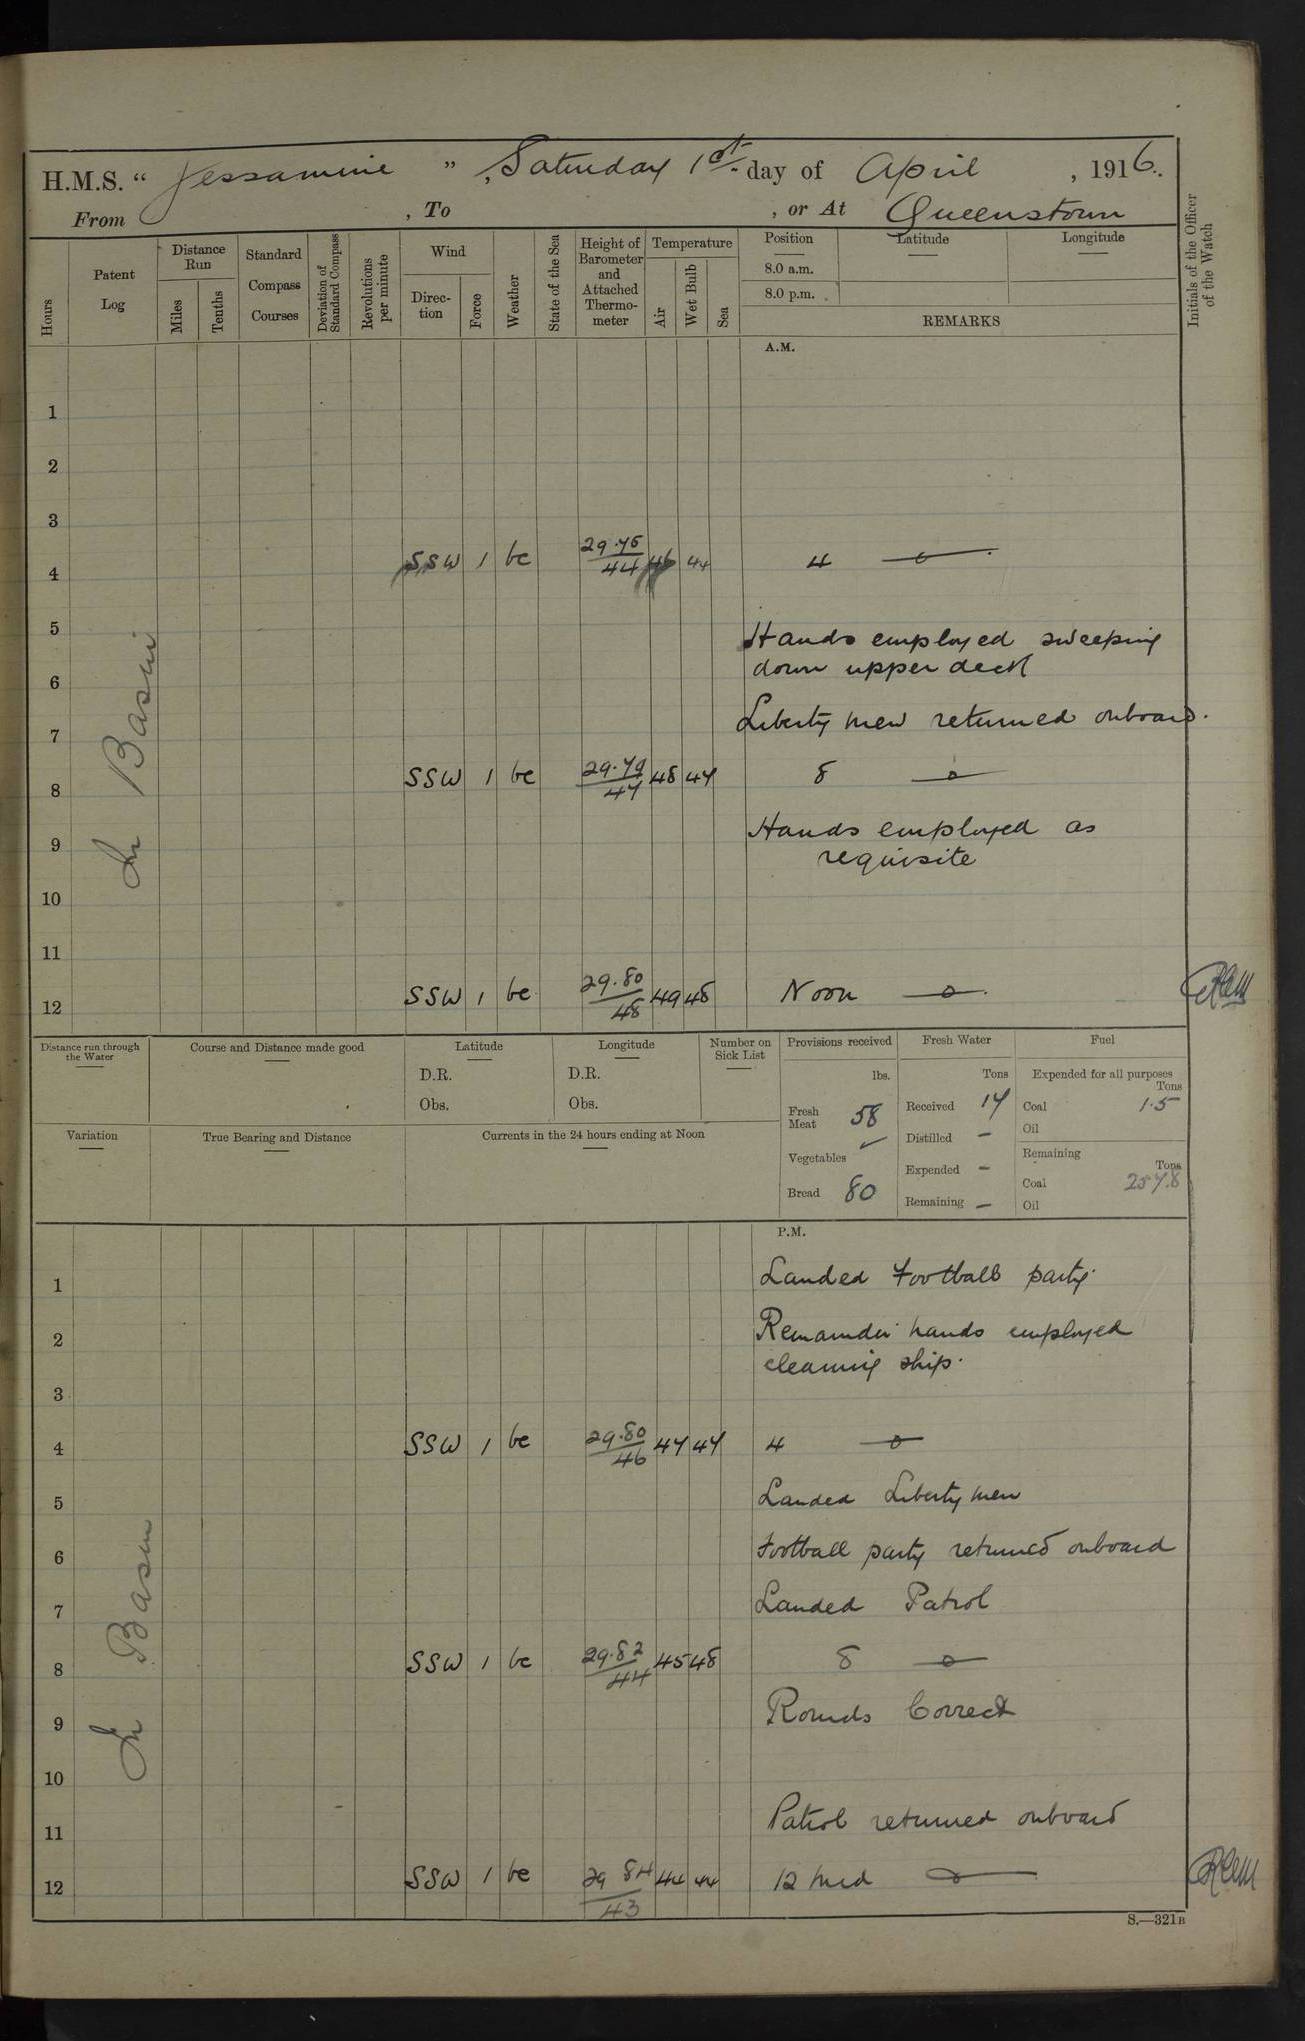 H.M.S. “ Jessamine ” , Saturday 1st day of April , 1916.
From , To , or At Queenstown
Hours
Patent Log
Distance Run
Miles
Tenths
Standard Compass Courses
Deviation of Standard Compass
Revolutions per minute
Wind
Direc-tion
Force
Weather
State of the Sea
Height of Barometer and Attached Thermo-meter
Temperature
Air
Wet Bulb
Sea
Position
8.0 a.m.
8.0 p.m.
Latitude
Longitude
REMARKS
Initials of the Officer of the Watch
A.M.
1
2
3
SSW 1 bc 29.75 44 46 44 4
4
5 Hands employed sweeping
down upper deck
6
Liberty men returned onboard.
7
SSW 1 bc 29.79 47 48 47 8
8
Hands employed as
9 requisite
10
11
12 SSW 1 bc 29.80 48 49 48 Noon
In Basin
Distance run through the Water
Course and Distance made good
Latitude
D.R.
Obs.
Longitude
D.R.
Obs.
Number on Sick List
Provisions received
lbs.
Fresh Meat 58
Vegetables
Bread 80
Fresh Water
Tons
Received 17
Distilled –
Expended –
Remaining –
Fuel
Expended for all purposes
Tons
Coal 1.5
Oil
Remaining
Tons
Coal 257.8
Oil
Variation
True Bearing and Distance
Currents in the 24 hours ending at Noon
P.M.
1 Landed Football party
2 Remainder hands employed
cleaning ship.
3
4 SSW 1 bc 29.80 46 47 47 4
5 Landed Liberty men
6 Football party returned onboard
7 Landed Patrol
8 SSW 1 bc 29.82 44 45 48 8
9 Rounds Correct
10
11 Patrol returned onboard
12 SSW 1 bc 29 84 43 44 44 12 Mid
In Basin
S.—321B